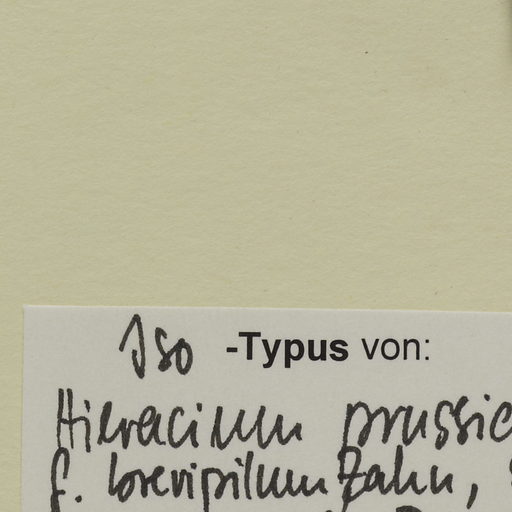 Iso -Typus von:
Hieracium prussic
f. brevipilum Zahn,